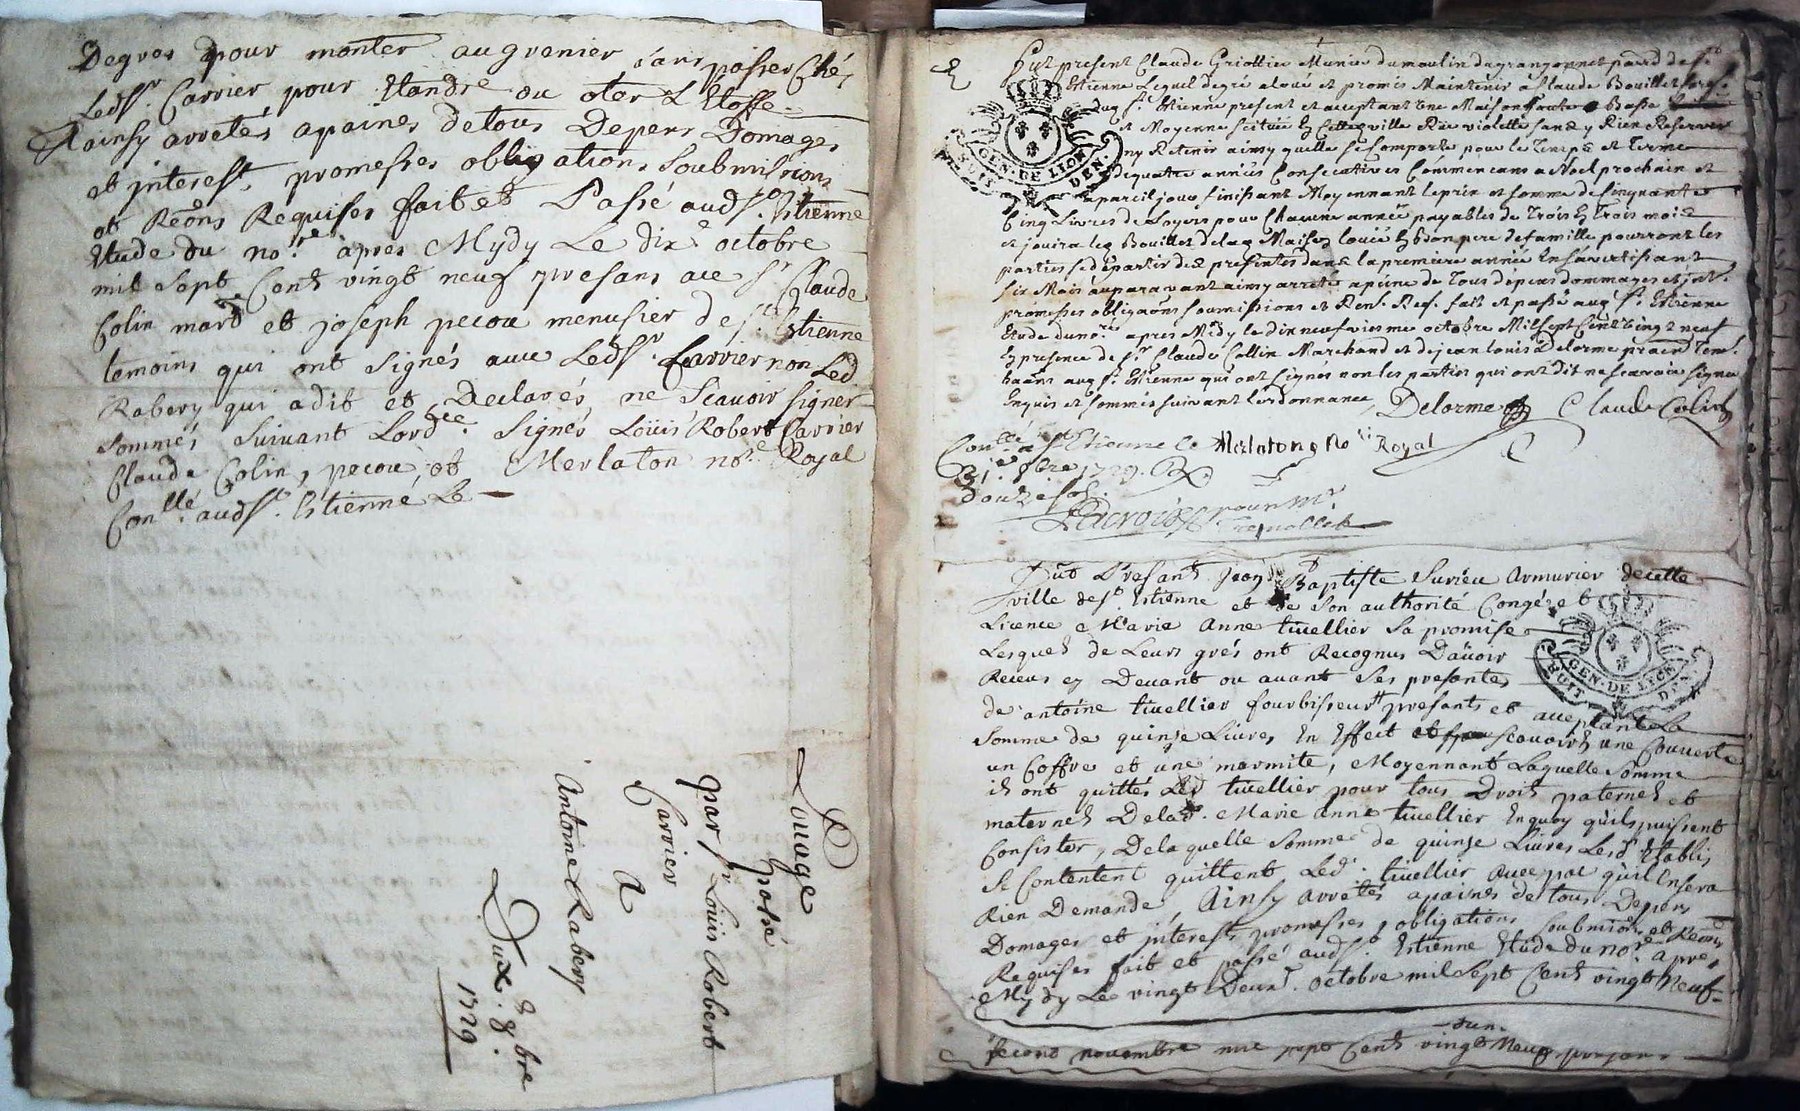 Degres pour monter au grenier sans passer Chés
Ledsr. Carrier pour Etandre ou oter L'Etoffe
Ainsy arretés apaines detous Depens Domages
et jnterest, promesses obligations Soubmissions
et Reçons Requises fait et Passé audst. Estienne
Etude du nore. après Mydy Le dixe octobre
mil Sept Cent vingt neuf presans ace sr. Claude
Colin mard et joseph pecou menusier de st. Estienne
temoins qui ont Signés avec Ledsr. Carrier non Led
Rabery qui a dit et Declarés ne Scavoir signer
sommés suivant Lordce. Signés Loüis Robert Carrier
Claude Colin, pecou, et Merlaton nore. Royal
Conllé. audst. Estienne Le
Louage
passé
par sr Loüis Robert
Carrier
A
Antoine Rabery
Dux. 8bre
1729
Fut present Claude Griottier Munier du moulin
Estienne Lequel degré a loué et promis Maintenir a Claude Bouillet
dug st. Estienne present et acceptant Une Maison haute Basse
et Moyenne scituée En Cette ville Rüe violette sans y Rien Reserver
ny Retenir ainsy quelle se Comporte pour le Temps et terme
dequatre années Consecutives Commencans a Noel prochain et
apareil jour finissant Moyennant le prix et somme de Cinquante
Cinq Livres de Loyers pour Chacune année payables de Trois En Trois mois
et jouira leq Bouillet delaq Maison louée En bon pere defamille pourront les
parties sedepartir des presentes dans la premiere année En s'avertissant
six Mois auparavant ainsy arreté apeine de Tous depens dommages et jnt.
promesses obligaons soumissions et Ren. Req. fait et passé aug st. Estienne
Etude du nore apres Midy le dix neufviesme octobre Mil sept Cent vingt neuf
En presence de sr. Claude Collin Marchand et de jean louis Delorme
aug st. Estienne qui ont signes non les parties qui ont dit ne scavoir signer
Enquis et sommés suivant l'ordonnance, Delorme Claude Colin
Conllé a st Etienne le Merlatong Nore Royal
31e. 8bre 1729.
douze sols.
Lacroix pour Mr
GEN. DE LYON
HUIT DEN.
Fut Presant Jean Baptiste Surieu Armurier de cette
ville de st. Estienne et de Son authorité Congé et
Licence Marie Anne tivellier Sa promise
Lesquels de Leurs grés ont Recognus Davoir
Receus cy Devant ou avant Ses presantes
de antoine tivellier fourbisseur presants et acceptants La
Somme de quinse Livres En Effect scavoir une Couverte
un Coffre et une marmite, Moyennant Laquelle Somme
ils ont quittés Led tivellier pour tous Droits paternels et
maternels Delad. Marie Anne tivellier Enquoy quils puissent
Consister, De laquelle Somme de quinse Livres Lesd Etablis
Se Contentent quittent Led. tivellier Avec pac qu'il Ensera
Rien Demandé, Ainsy arretés apaines de tous Depens
Domages et jnterest promesses obligations soubmions et Reçons
Requises fait et passé audst. Estienne Etude du nore. apres
Mydy Le vingt Deux. octobre mil Sept Cent vingt Neuf
GEN. DE LYON
HUIT DEN.
second novembre mil sept Cent vingt Neuf